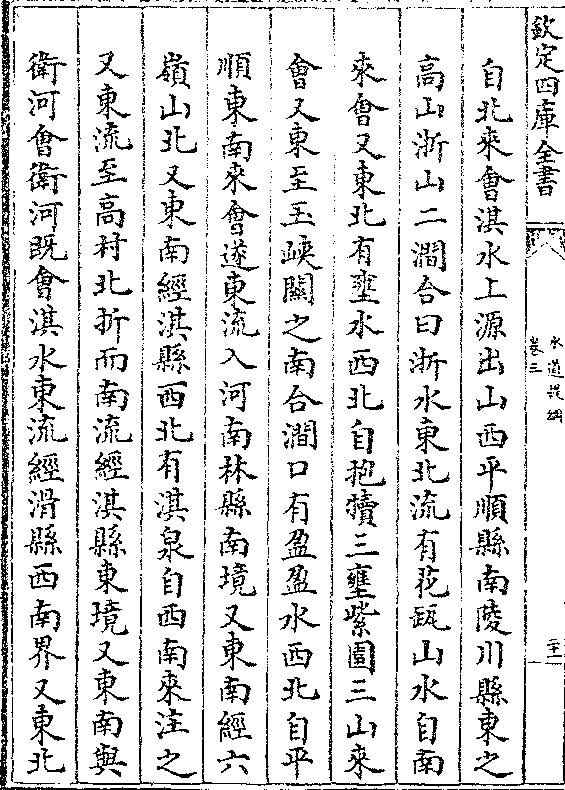 欽定四庫全書
水道提綱
卷三
二十一
自北來會淇水上源出山西平順縣南陵川縣東之
高山浙山二澗合曰浙水東北流有花瓿山水自南
來會又東北有壅水西北自抱犢三壅紫團三山來
會又東至玉峽關之南合澗口有盈盈水西北自平
順東南來會遂東流入河南林縣南境又東南經六
嶺山北又東南經淇縣西北有淇泉自西南來注之
又東流至高村北折而南流經淇縣東境又東南與
衛河會衛河既會淇水東流經滑縣西南界又東北